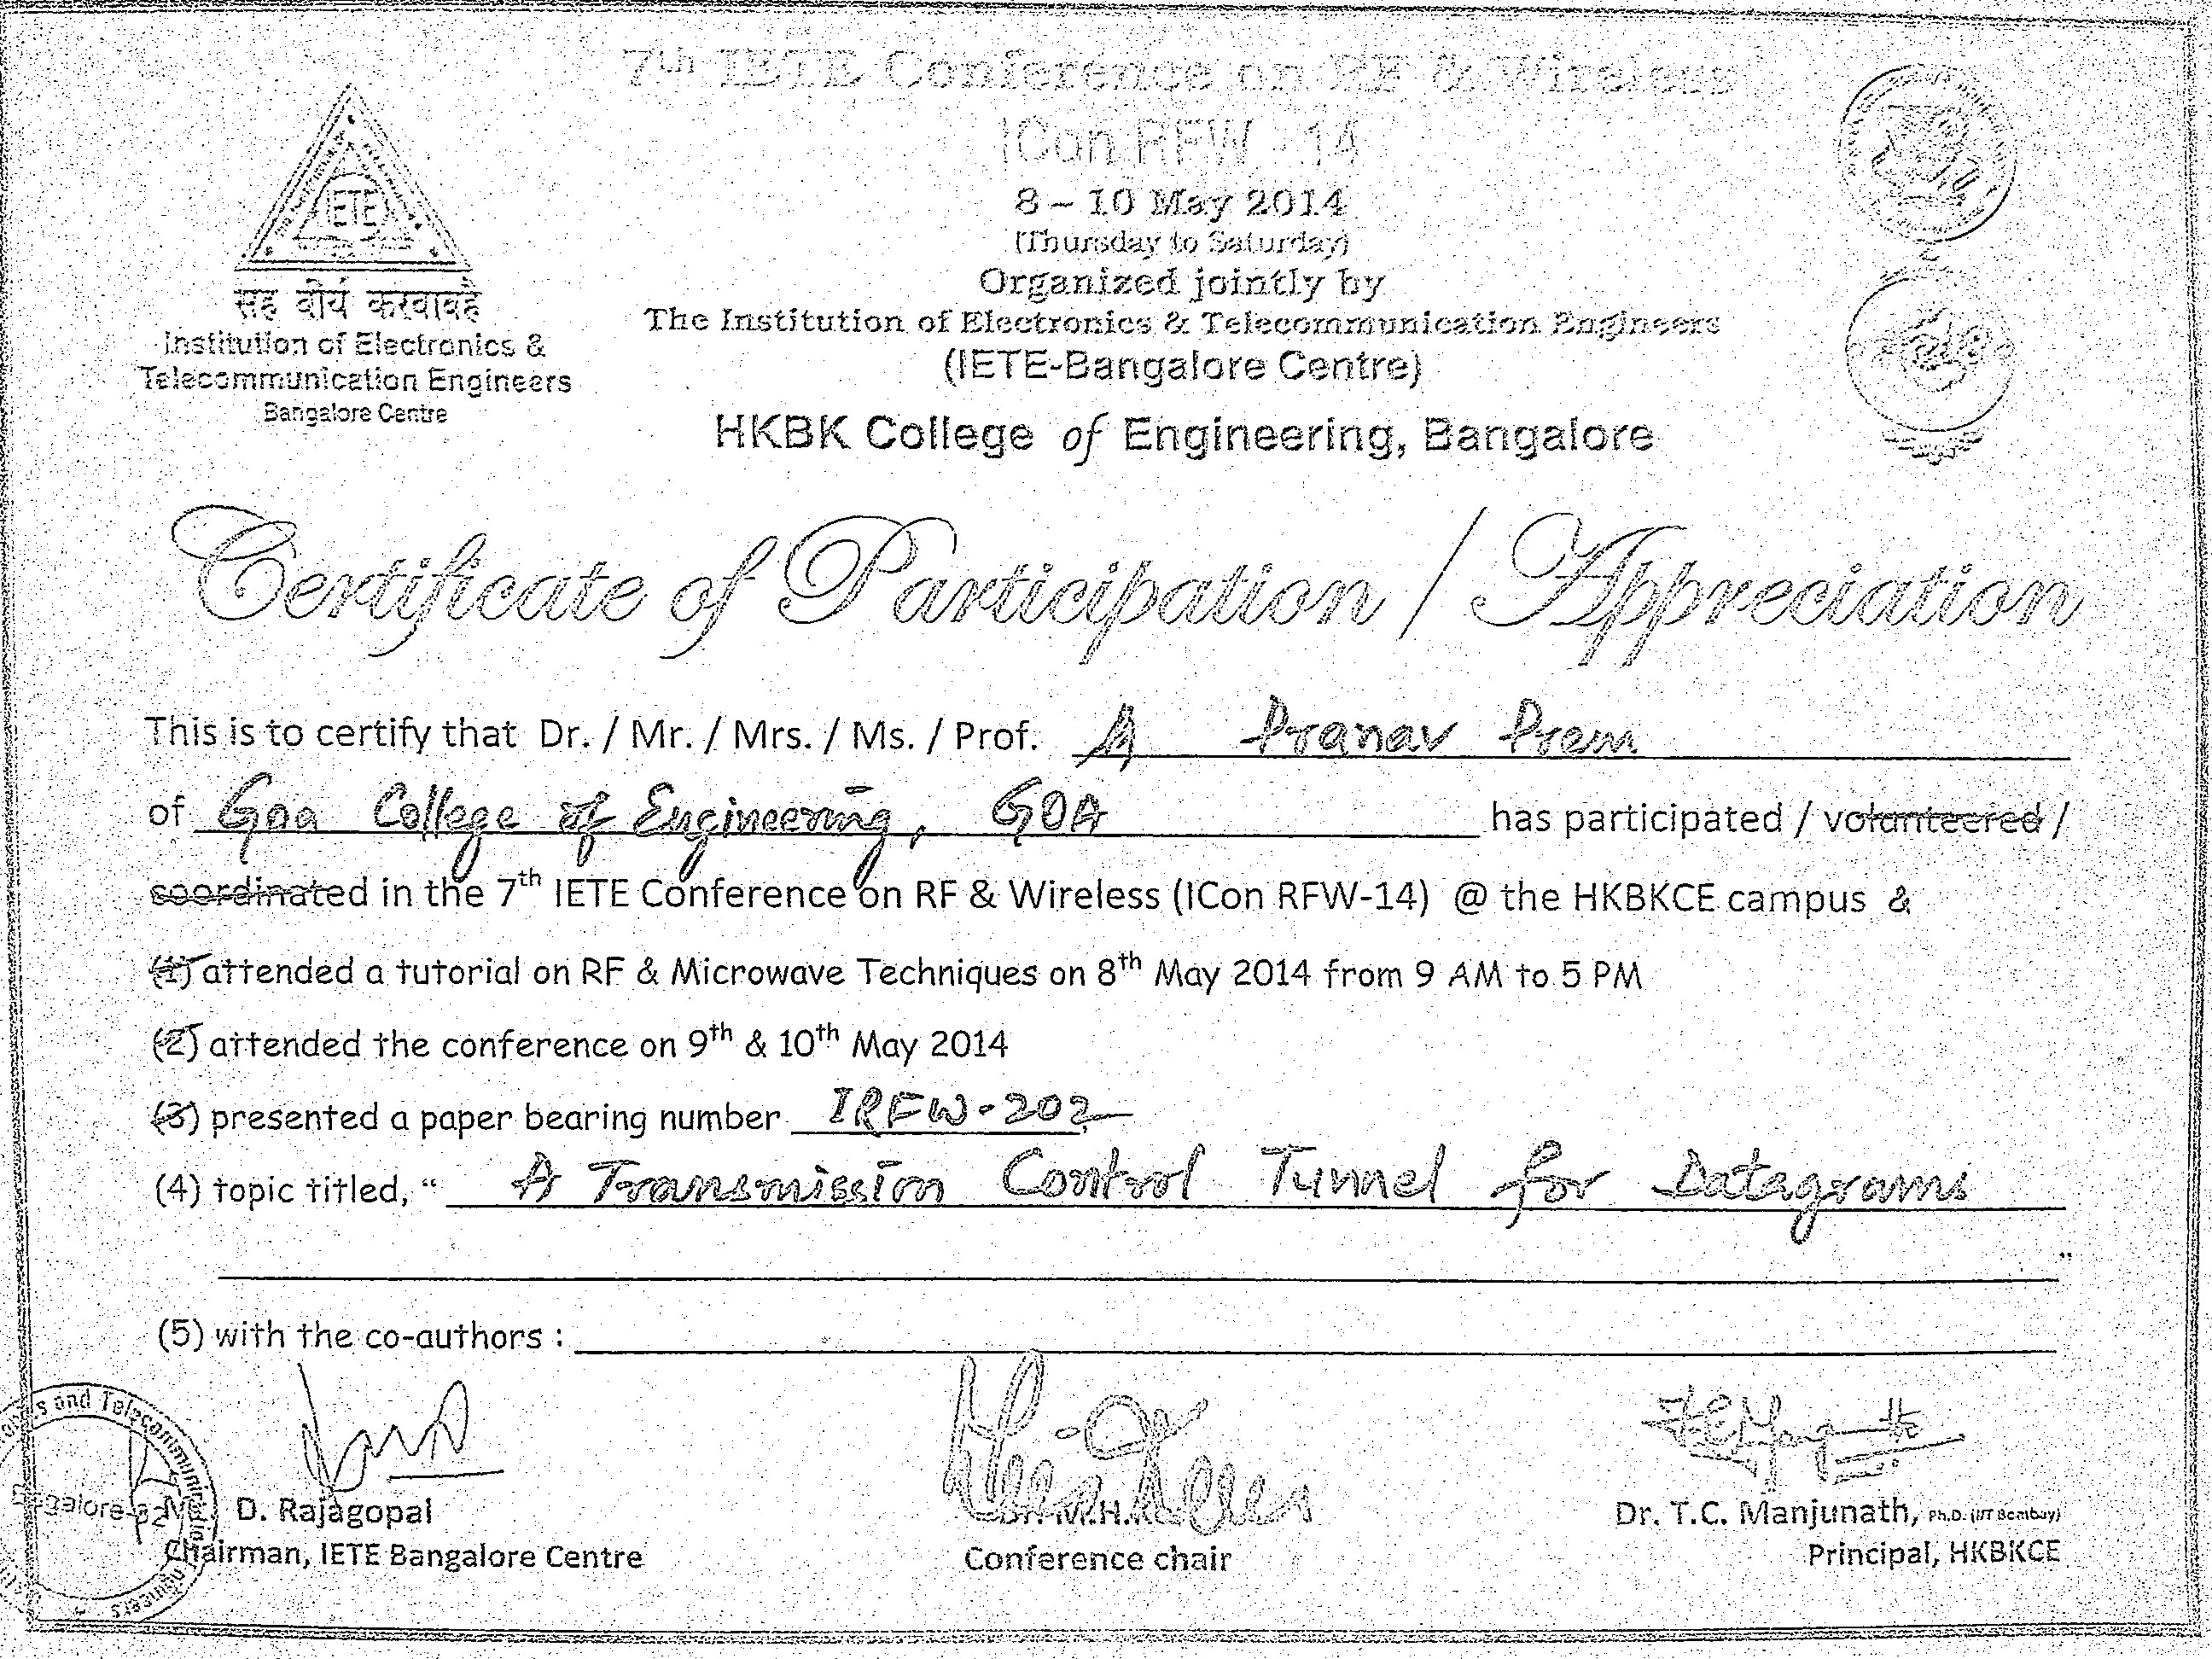 7th IETE Conference on RF & Wireless
ICon RFW - 14
8 – 10 May 2014
(Thursday to Saturday)
Organized jointly by
The Institution of Electronics & Telecommunication Engineers
(IETE-Bangalore Centre)
HKBK College of Engineering, Bangalore
IETE
सह वीर्यं करवावहै
Institution of Electronics &
Telecommunication Engineers
Bangalore Centre
Certificate of Participation / Appreciation
This is to certify that Dr. / Mr. / Mrs. / Ms. / Prof. A Pranav Prem
of Goa College of Engineering, GOA has participated / volunteered /
coordinated in the 7th IETE Conference on RF & Wireless (ICon RFW-14) @ the HKBKCE campus &
(1) attended a tutorial on RF & Microwave Techniques on 8th May 2014 from 9 AM to 5 PM
(2) attended the conference on 9th & 10th May 2014
(3) presented a paper bearing number IRFW-202
(4) topic titled, “ A Transmission Control Tunnel for Datagrams
”
(5) with the co-authors :
s and Telecommunication
Engineers
galore-52
D. Rajagopal
Chairman, IETE Bangalore Centre
Dr. M.H.
Conference chair
Dr. T.C. Manjunath, Ph.D. (IIT Bombay)
Principal, HKBKCE